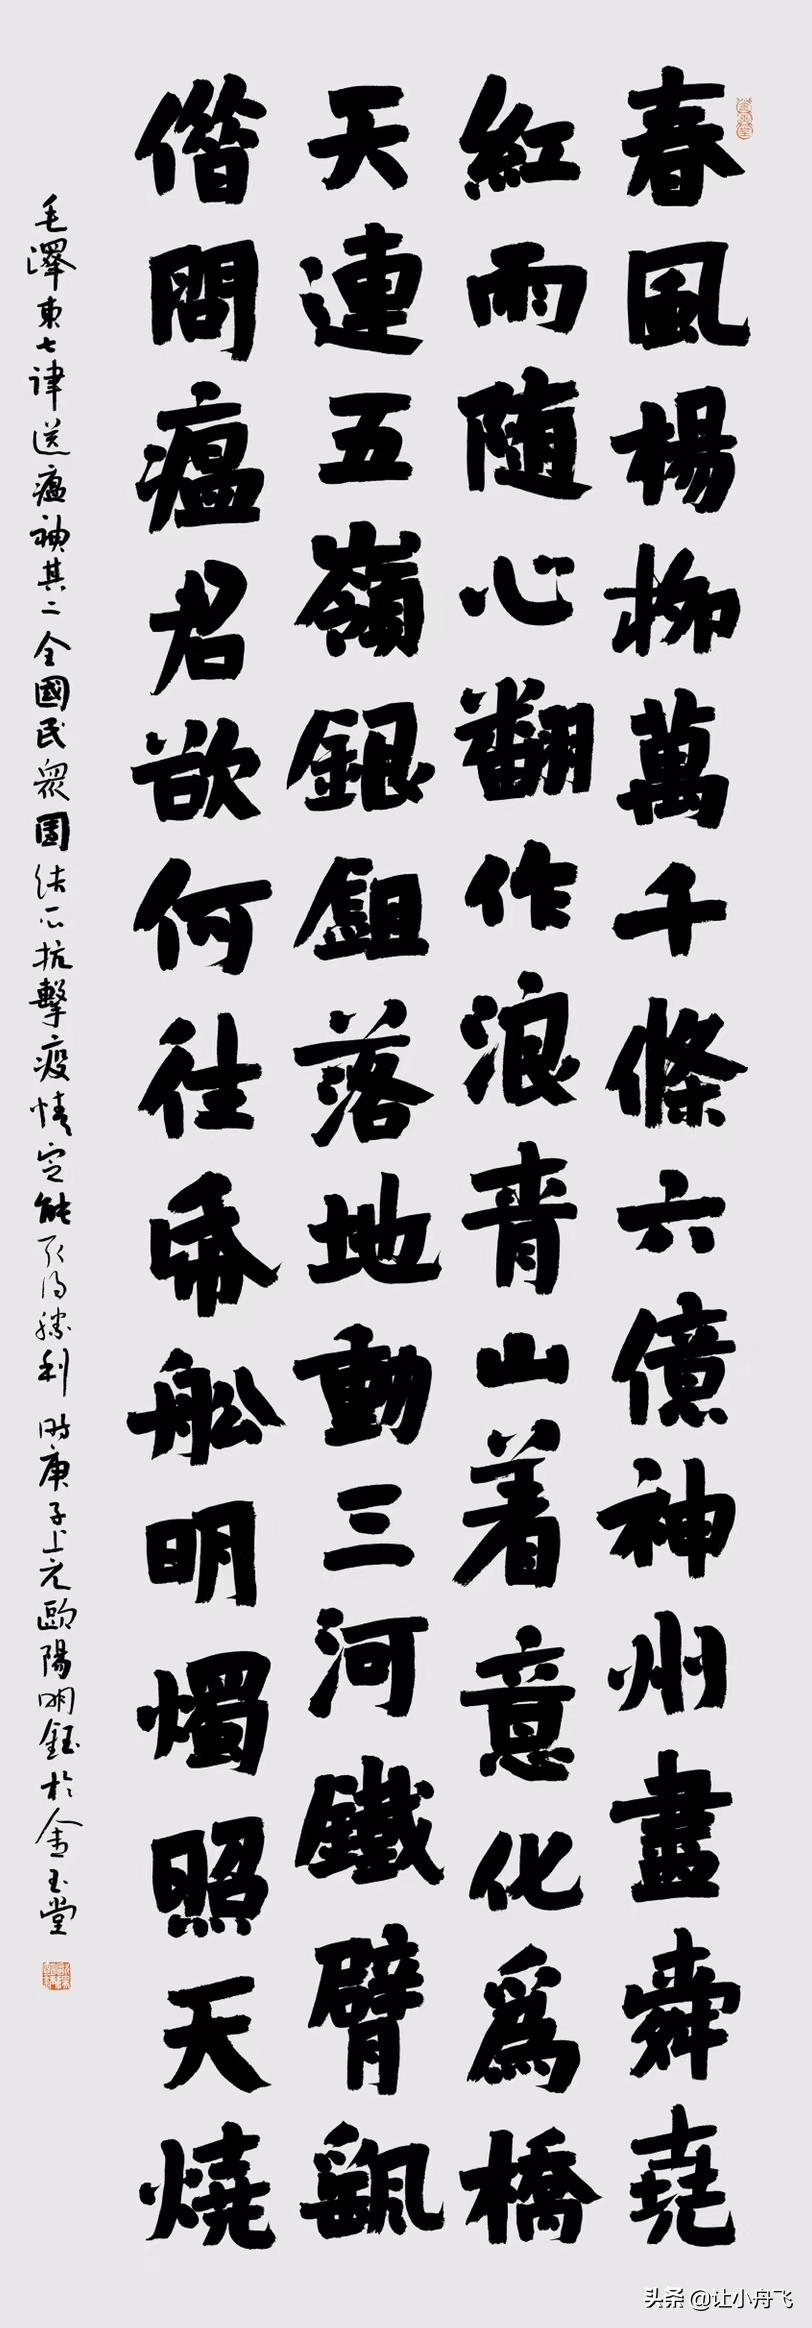 春風楊柳萬千條六億神州盡舜堯
紅雨随心翻作浪青山着意化爲橋
天連五嶺銀鉏落地動三河鐵臂颻
借問瘟君欲何往帋舩明燭照天燒
毛澤東七律送瘟神其二全國民衆團结一心抗擊疫情定能取得勝利 时庚子上元歐陽明鈺於金玉堂
头条 @让小舟飞